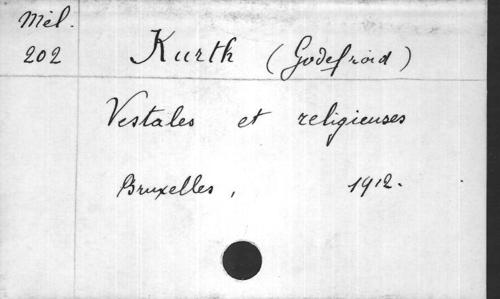 Mél.
202
Kurth (Godefroid)
Vestales et religieuses
Bruxelles, 1912.